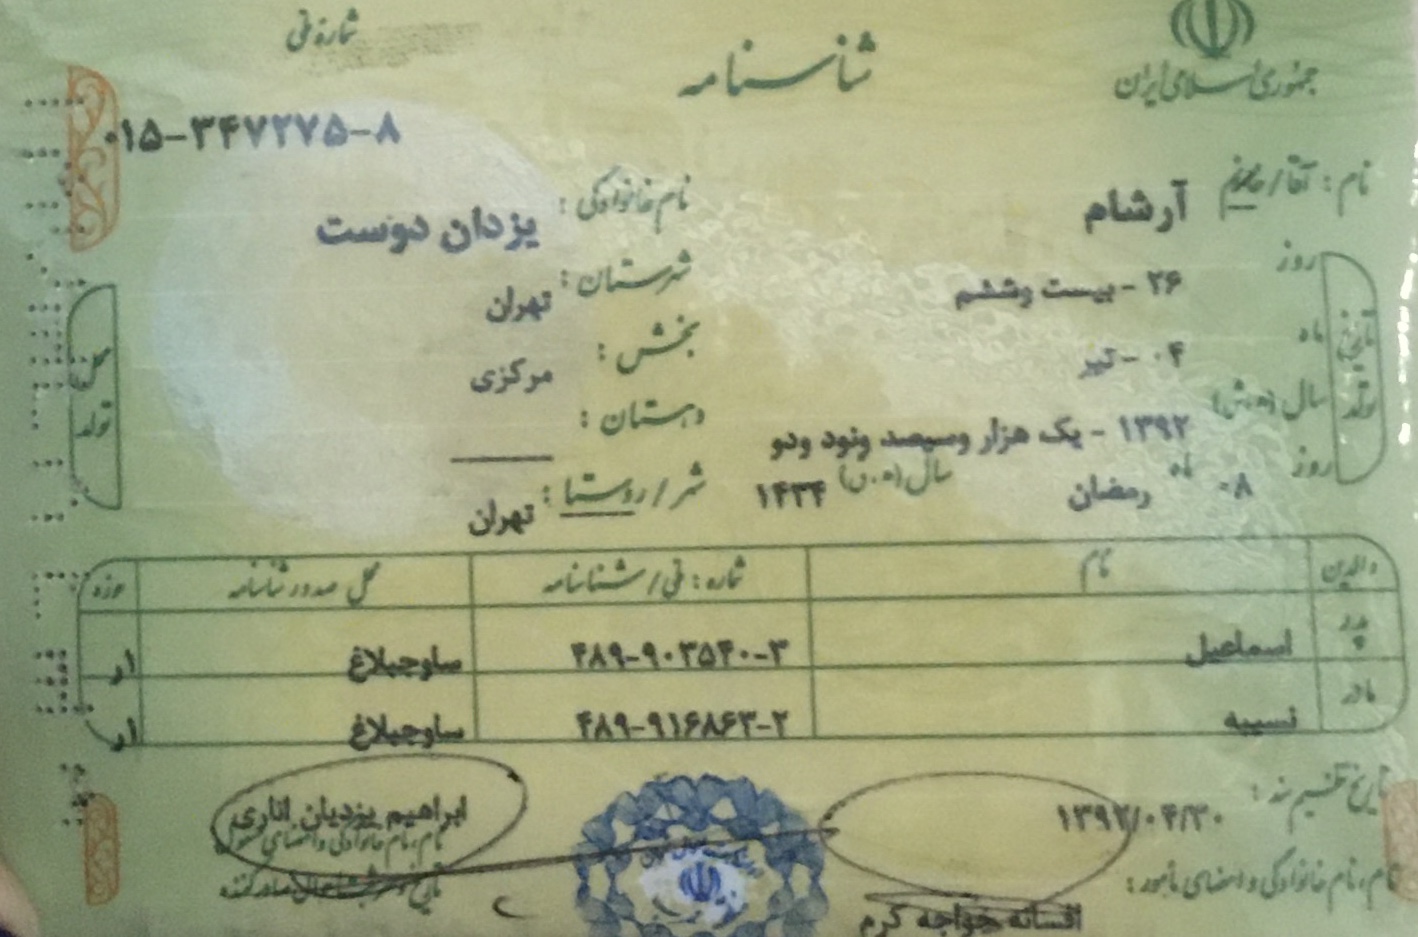 جمهوری اسلامی ایران
شناسنامه
شماره ملی
۰۱۵-۳۴۷۲۷۵-۸
نام : آقا/خانم آرشام
نام خانوادگی : یزدان دوست
تاریخ تولد
روز ۲۶ - بیست وششم
ماه ۰۴ - تیر
سال (ه.ش) ۱۳۹۲ - یک هزار وسیصد ونود ودو
روز ۰۸ ماه رمضان سال (ه.ق) ۱۴۳۴
محل تولد
شهرستان : تهران
بخش : مرکزی
دهستان :
شهر / روستا : تهران
والدین نام شماره : ملی / شناسنامه محل صدور شناسنامه حوزه
پدر اسماعیل ۴۸۹-۹۰۳۵۴۰-۳ ساوجبلاغ
مادر نسیبه ۴۸۹-۹۱۶۸۶۳-۲ ساوجبلاغ
تاریخ تنظیم سند : ۱۳۹۲/۰۴/۳۰
نام، نام خانوادگی و امضای مامور :
افسانه خواجه کرم
ابراهیم یزدیان اناری
نام، نام خانوادگی و امضای